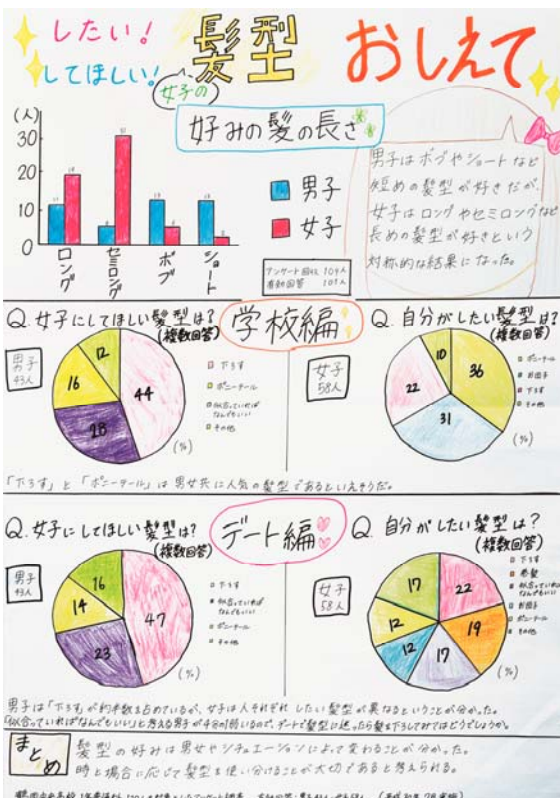 したい!
してほしい!
髪型
おしえて
女子の
好みの髪の長さ
(人)
30
20
10
0
ロング
セミロング
ボブ
ショート
男子
女子
男子はボブやショートなど
短めの髪型が好きだが、
女子はロングやセミロングなど
長めの髪型が好きという
対称的な結果になった。
アンケート回収 104人
有効回答 101人
学校編
Q. 女子にしてほしい髪型は?
(複数回答)
男子
43人
44
28
16
12
(%)
下ろす
ポニーテール
似合っていれば
なんでもいい
その他
Q. 自分がしたい髪型は?
(複数回答)
女子
58人
36
31
22
10
(%)
ポニーテール
お団子
下ろす
その他
「下ろす」と「ポニーテール」は男女共に人気の髪型であるといえそうだ。
デート編
Q. 女子にしてほしい髪型は?
(複数回答)
男子
43人
47
23
14
16
(%)
下ろす
似合っていれば
なんでもいい
ポニーテール
その他
Q. 自分がしたい髪型は?
(複数回答)
女子
58人
22
19
17
12
12
17
(%)
下ろす
似合っていれば
なんでもいい
お団子
ポニーテール
その他
男子は「下ろす」が約半数を占めているが、女子は人それぞれ したい髪型が異なるということが分かった。
「似合っていればなんでもいい」と考える男子が4分の1弱いるので、デートで髪型に迷ったら髪を下ろしてみてはどうでしょうか。
まとめ
髪型の好みは男女やシチュエーションによって変わることが分かった。
時と場合に応じて髪型を使い分けることが大切であると考えられる。